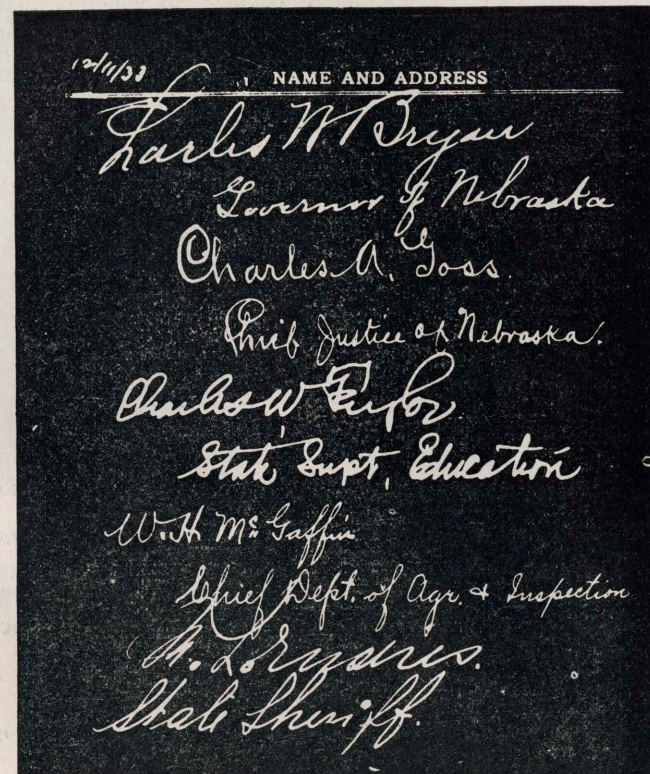 12/11/33
NAME AND ADDRESS
Charles W. Bryan
Governor of Nebraska
Charles A. Goss.
Chief Justice of Nebraska.
Charles W Taylor
State Supt, Education
W. H. McGaffin
Chief Dept. of Agr. & Inspection
Endres.
State Sheriff.